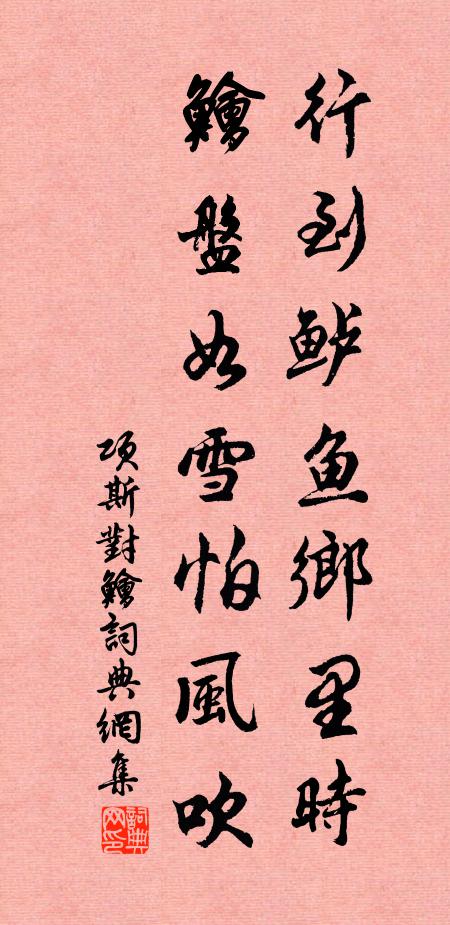 行到鲈鱼鄉里時
鱠盤如雪怕風吹
項斯對鱠詞典網集
詞典網印